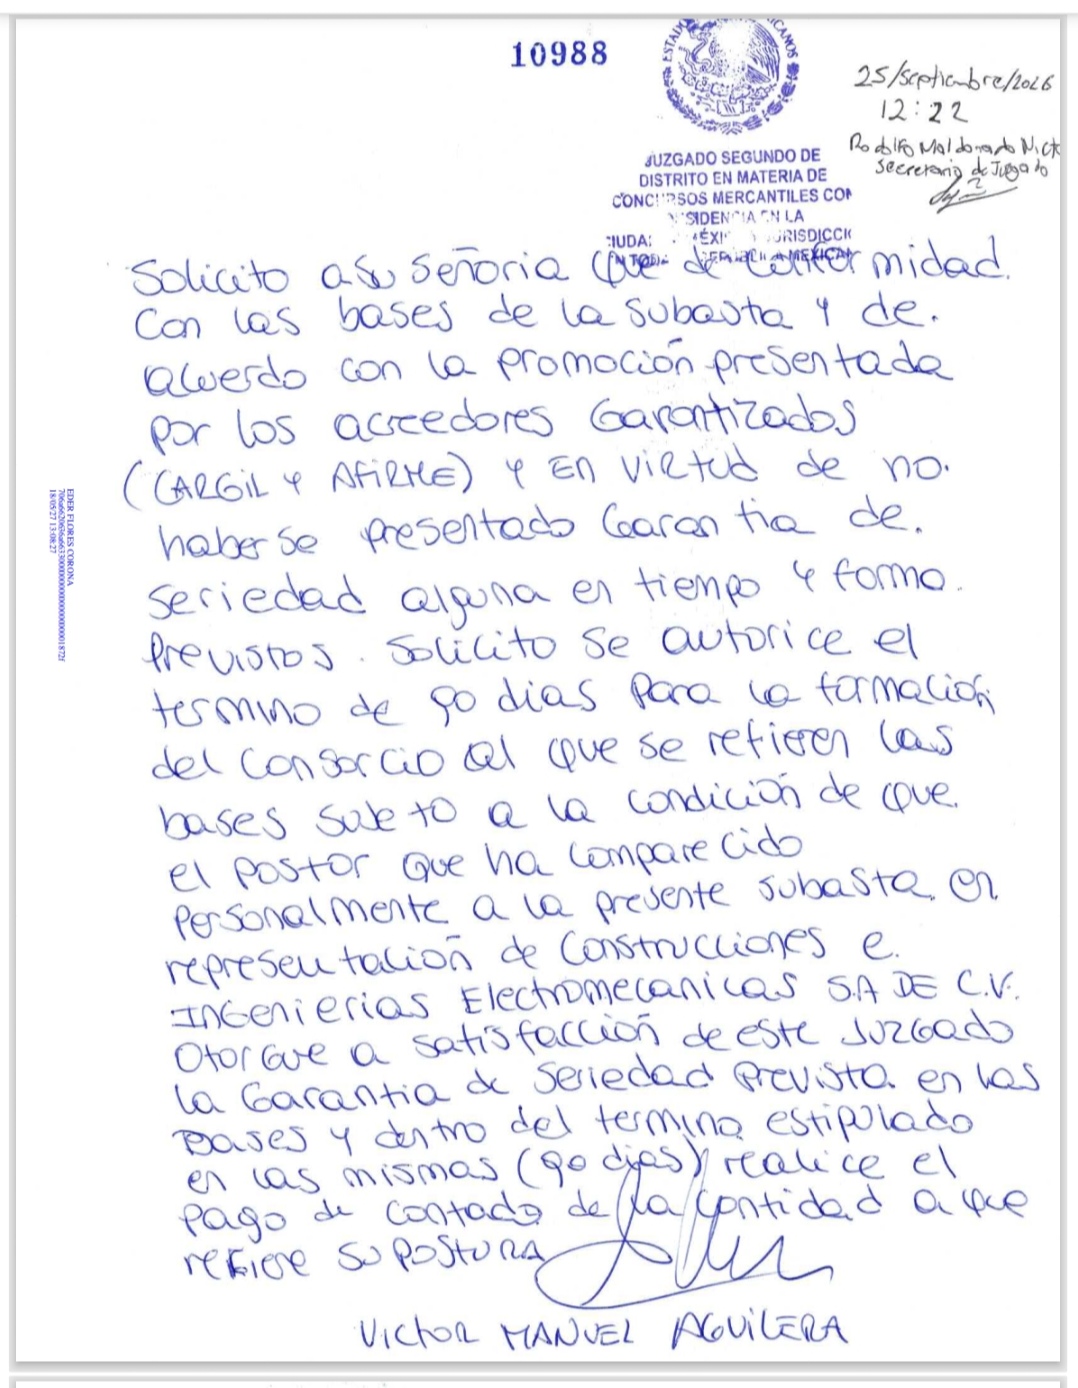 10988
25/septiembre/2026
12:22
Rodolfo Maldonado
Secretario de Juzgado
JUZGADO SEGUNDO DE
DISTRITO EN MATERIA DE
CONCURSOS MERCANTILES CON
RESIDENCIA EN LA
Solicito a Su Señoria que de conformidad.
Con las bases de la subasta y de.
acuerdo con la promoción presentada
por los acreedores Garantizados
(CARGIL y AFIRME) y EN VIRTUD de no.
haberse presentado Garantia de.
Seriedad alguna en tiempo y forma.
Previstos. Solicito se autorice el
termino de 90 dias para la formación
del Consorcio al que se refieren las
bases sujeto a la condición de que.
el Postor que ha comparecido
Personalmente a la presente subasta en
representación de Construcciones e.
INGenierias Electromecanicas S.A DE C.V.
Otorgue a satisfacción de este Juzgado
la Garantia de Seriedad prevista en las
Bases y dentro del termino estipulado
en las mismas (90 dias) realice el
Pago de contado de la cantidad a que
refiere su POSTURA
VICTOR MANUEL AGUILERA
EDER FLORES CORONA
18/05/27 13:08:27